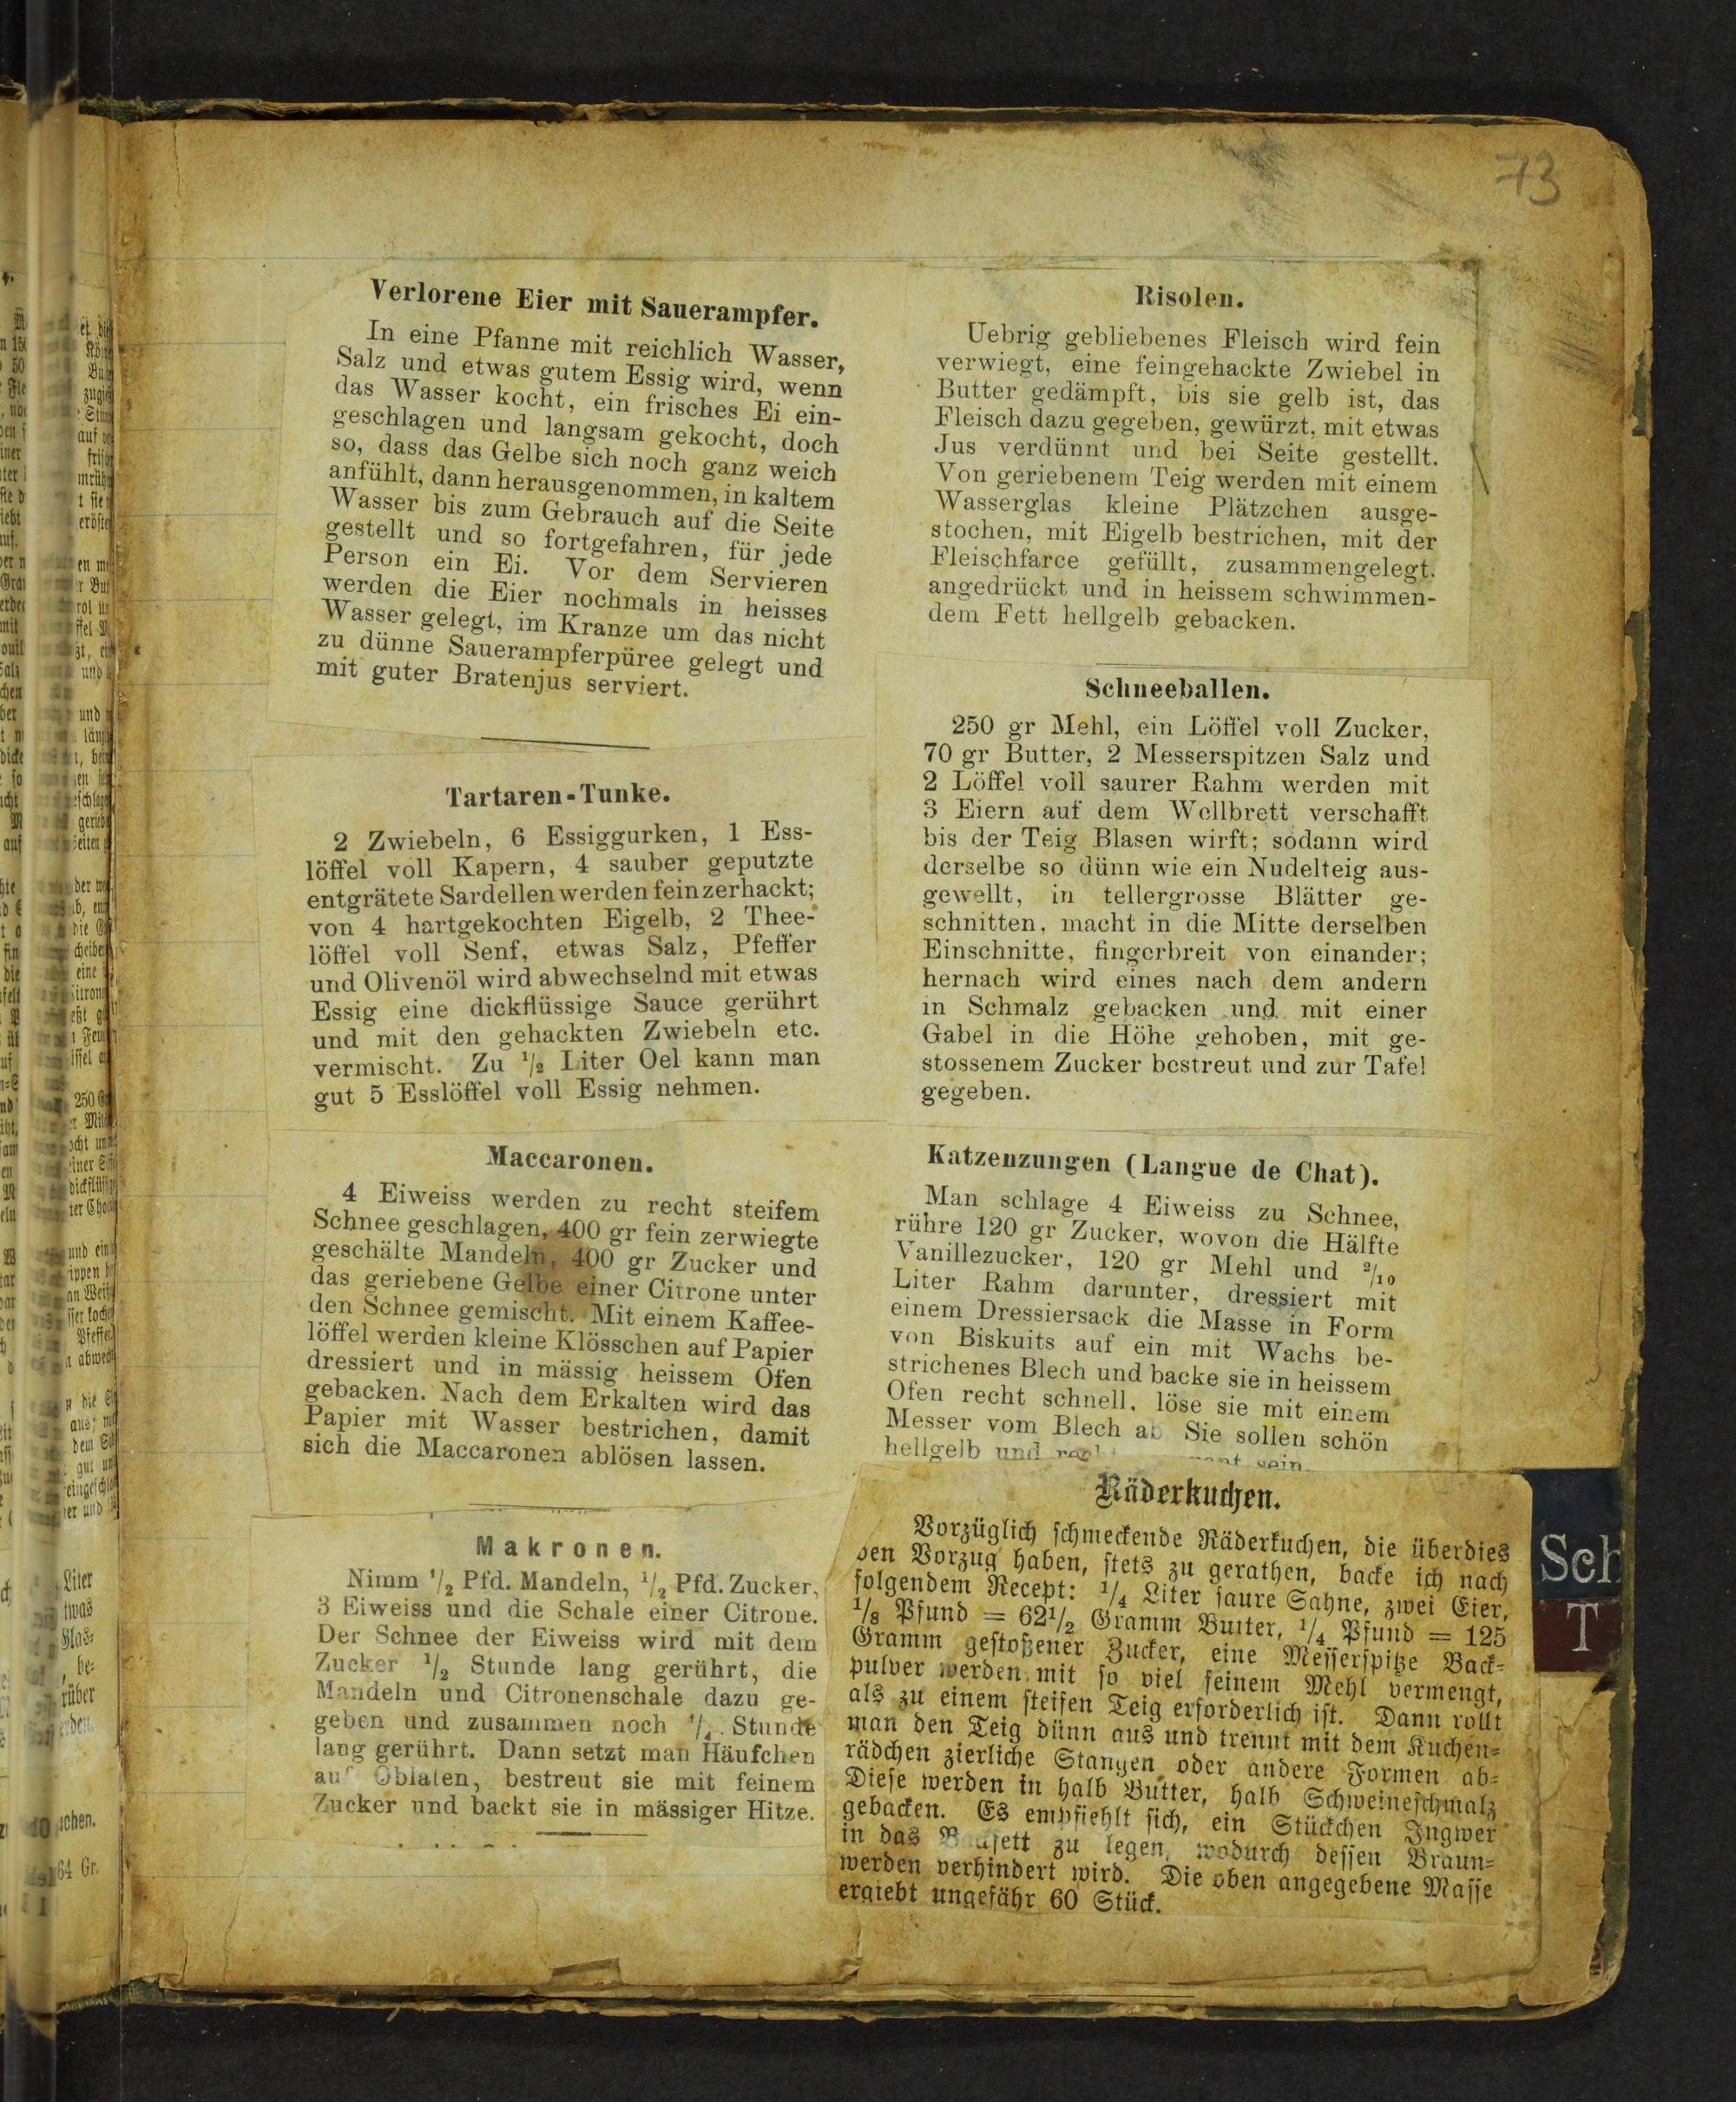 73
Verlorene Eier mit Sauerampfer.
In eine Pfanne mit reichlich Wasser,
Salz und etwas gutem Essig wird, wenn
das Wasser kocht, ein frisches Ei ein-
geschlagen und langsam gekocht, doch
so, dass das Gelbe sich noch ganz weich
anfühlt, dann herausgenommen, in kaltem
Wasser bis zum Gebrauch auf die Seite
gestellt und so fortgefahren, für jede
Person ein Ei. Vor dem Servieren
werden die Eier nochmals in heisses
Wasser gelegt, im Kranze um das nicht
zu dünne Sauerampferpüree gelegt und
mit guter Bratenjus serviert.
Tartaren-Tunke.
2 Zwiebeln, 6 Essiggurken, 1 Ess-
löffel voll Kapern, 4 sauber geputzte
entgrätete Sardellen werden fein zerhackt;
von 4 hartgekochten Eigelb, 2 Thee-
löffel voll Senf, etwas Salz, Pfeffer
und Olivenöl wird abwechselnd mit etwas
Essig eine dickflüssige Sauce gerührt
und mit den gehackten Zwiebeln etc.
vermischt. Zu 1/2 Liter Oel kann man
gut 5 Esslöffel voll Essig nehmen.
Maccaronen.
4 Eiweiss werden zu recht steifem
Schnee geschlagen, 400 gr fein zerwiegte
geschälte Mandeln, 400 gr Zucker und
das geriebene Gelbe einer Citrone unter
den Schnee gemischt. Mit einem Kaffee-
löffel werden kleine Klösschen auf Papier
dressiert und in mässig heissem Ofen
gebacken. Nach dem Erkalten wird das
Papier mit Wasser bestrichen, damit
sich die Maccaronen ablösen lassen.
Makronen.
Nimm 1/2 Pfd. Mandeln, 1/2 Pfd. Zucker,
3 Eiweiss und die Schale einer Citrone.
Der Schnee der Eiweiss wird mit dem
Zucker 1/2 Stunde lang gerührt, die
Mandeln und Citronenschale dazu ge-
geben und zusammen noch 1/4 Stunde
lang gerührt. Dann setzt man Häufchen
auf Oblaten, bestreut sie mit feinem
Zucker und backt sie in mässiger Hitze.
Risolen.
Uebrig gebliebenes Fleisch wird fein
verwiegt, eine feingehackte Zwiebel in
Butter gedämpft, bis sie gelb ist, das
Fleisch dazu gegeben, gewürzt, mit etwas
Jus verdünnt und bei Seite gestellt.
Von geriebenem Teig werden mit einem
Wasserglas kleine Plätzchen ausge-
stochen, mit Eigelb bestrichen, mit der
Fleischfarce gefüllt, zusammengelegt.
angedrückt und in heissem schwimmen-
dem Fett hellgelb gebacken.
Schneeballen.
250 gr Mehl, ein Löffel voll Zucker,
70 gr Butter, 2 Messerspitzen Salz und
2 Löffel voll saurer Rahm werden mit
3 Eiern auf dem Wellbrett verschafft
bis der Teig Blasen wirft; sodann wird
derselbe so dünn wie ein Nudelteig aus-
gewellt, in tellergrosse Blätter ge-
schnitten, macht in die Mitte derselben
Einschnitte, fingerbreit von einander;
hernach wird eines nach dem andern
in Schmalz gebacken und mit einer
Gabel in die Höhe gehoben, mit ge-
stossenem Zucker bestreut und zur Tafel
gegeben.
Katzenzungen (Langue de Chat).
Man schlage 4 Eiweiss zu Schnee,
rühre 120 gr Zucker, wovon die Hälfte
Vanillezucker, 120 gr Mehl und 2/10
Liter Rahm darunter, dressiert mit
einem Dressiersack die Masse in Form
von Biskuits auf ein mit Wachs be-
strichenes Blech und backe sie in heissem
Ofen recht schnell, löse sie mit einem
Messer vom Blech ab Sie sollen schön
hellgelb und sein.
Räderkuchen.
Vorzüglich schmeckende Räderkuchen, die überdies
den Vorzug haben, stets zu gerathen, backe ich nach
folgendem Recept: 1/4 Liter saure Sahne, zwei Eier,
1/8 Pfund = 62 1/2 Gramm Butter, 1/4 Pfund = 125
Gramm gestoßener Zucker, eine Messerspitze Back=
pulver werden mit so viel feinem Mehl vermengt,
als zu einem steifen Teig erforderlich ist. Dann rollt
man den Teig dünn aus und trennt mit dem Kuchen=
rädchen zierliche Stangen oder andere Formen ab=
Diese werden in halb Butter, halb Schweineschmalz
gebacken. Es empfiehlt sich, ein Stückchen Ingwer
in das zu legen, wodurch dessen Braun=
werden verhindert wird. Die oben angegebene Masse
ergiebt ungefähr 60 Stück.
Sch
T